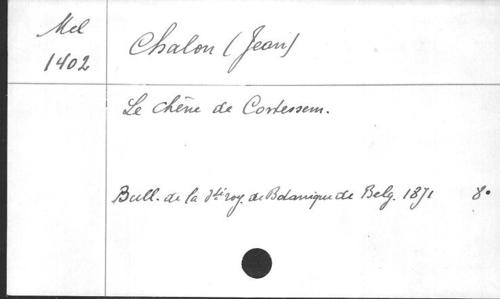 Mel
1402
Chalon (Jean)
Le chêne de Cortessem.
Bull. de la Sté roy. de Botanique de Belg. 1871 8°